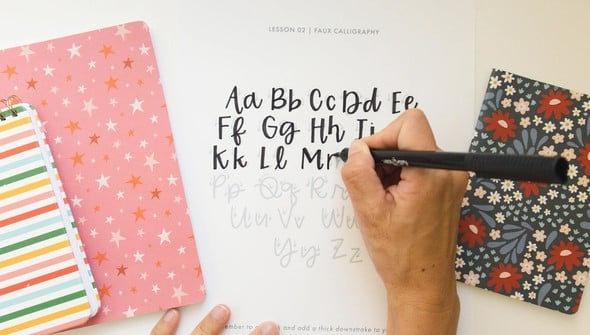 LESSON 02 | FAUX CALLIGRAPHY
Aa Bb Cc Dd Ee
Ff Gg Hh Ii
Kk Ll
Pp Qq Rr
Uu Vv Ww
Yy Zz
and add a thick downstroke to